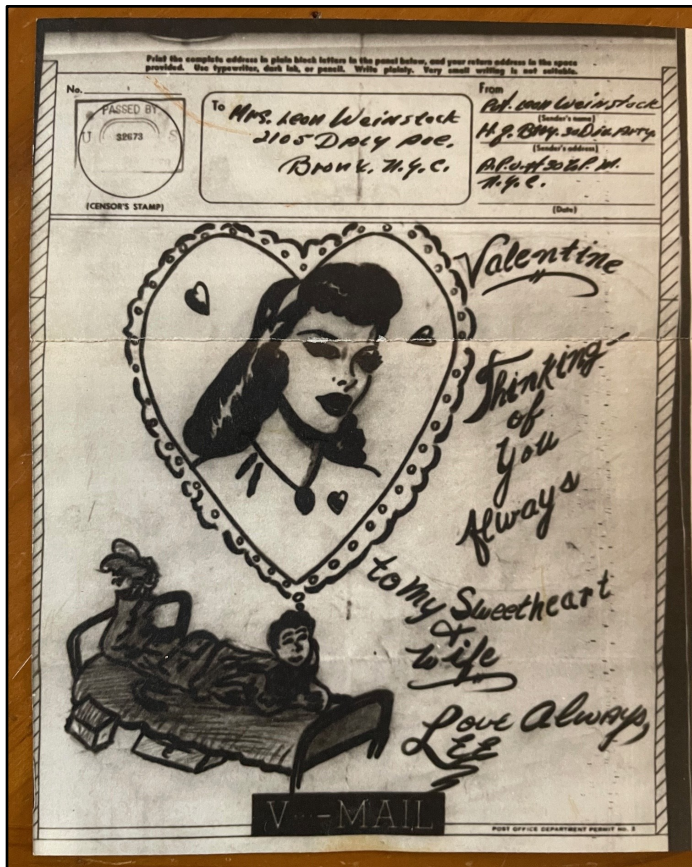 Print the complete address in plain block letters in the panel below, and your return address in the space
provided. Use typewriter, dark ink, or pencil. Write plainly. Very small writing is not suitable.
No.
PASSED BY
U S
32673
(CENSOR'S STAMP)
To Mrs. Leon Weinstock
2105 Daly Ave.
Bronx. N.Y.C.
From
Pvt. Leon Weinstock
(Sender's name)
(Sender's address)
N.Y.C.
(Date)
Valentine
Thinking—
of
You
Always
to My Sweetheart
&
Wife
Love Always,
LEE
V···-MAIL
POST OFFICE DEPARTMENT PERMIT NO. 3